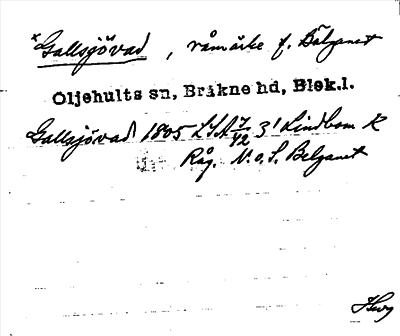 *Gallsjövad, råmärke f. Bälganet
Oljehults sn, Bräkne hd, Blek.l.
Gallsjövad 1805 LSA 7/42 3¹ Lindbom K
Råg. N. o. S. Belganet